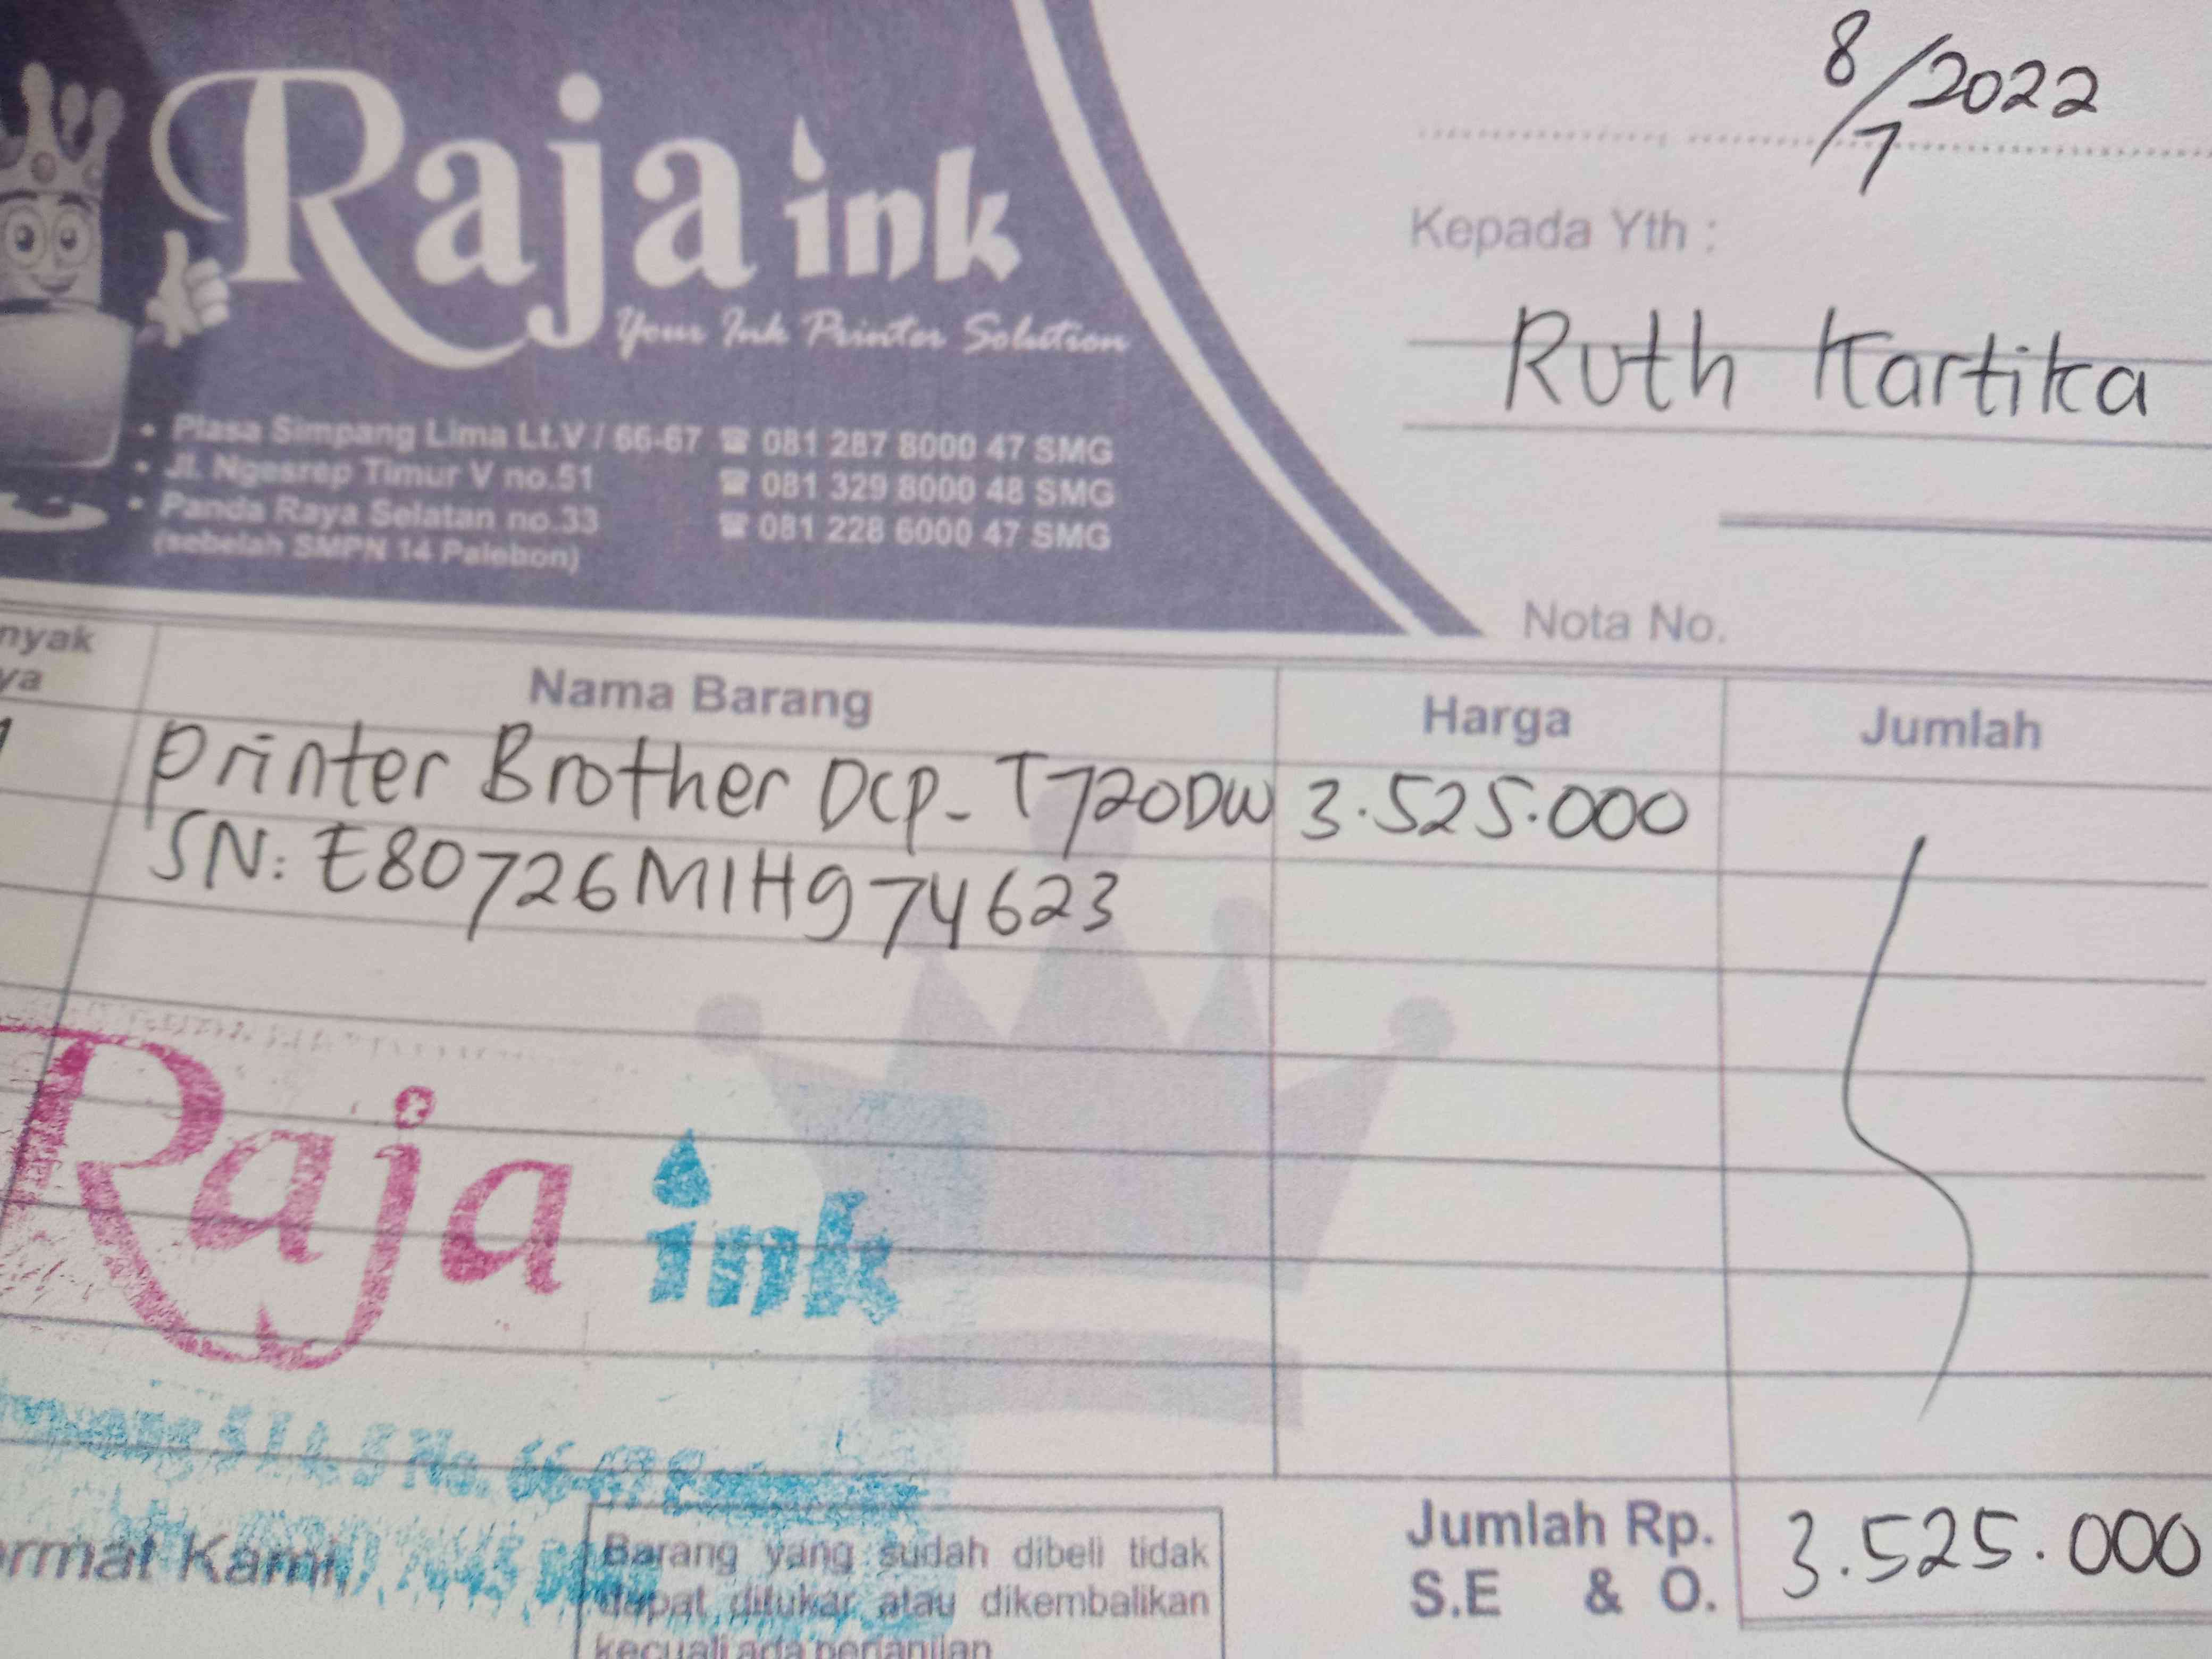 Raja ink
Your Ink Printer Solution
• Plasa Simpang Lima Lt.V / 66-67 ☎ 081 287 8000 47 SMG
• Jl. Ngesrep Timur V no.51 ☎ 081 329 8000 48 SMG
• Panda Raya Selatan no.33 ☎ 081 228 6000 47 SMG
(sebelah SMPN 14 Palebon)
8/7/2022
Kepada Yth :
Ruth Kartika
Nota No.
nyak
ya
Nama Barang Harga Jumlah
1 Printer Brother DCP-T720DW 3.525.000
SN: E80726M1H974623
Raja ink
No. 66-67
rmat Kami,
Barang yang sudah dibeli tidak
dapat ditukar atau dikembalikan
kecuali ada perjanjian
Jumlah Rp. 3.525.000
S.E & O.